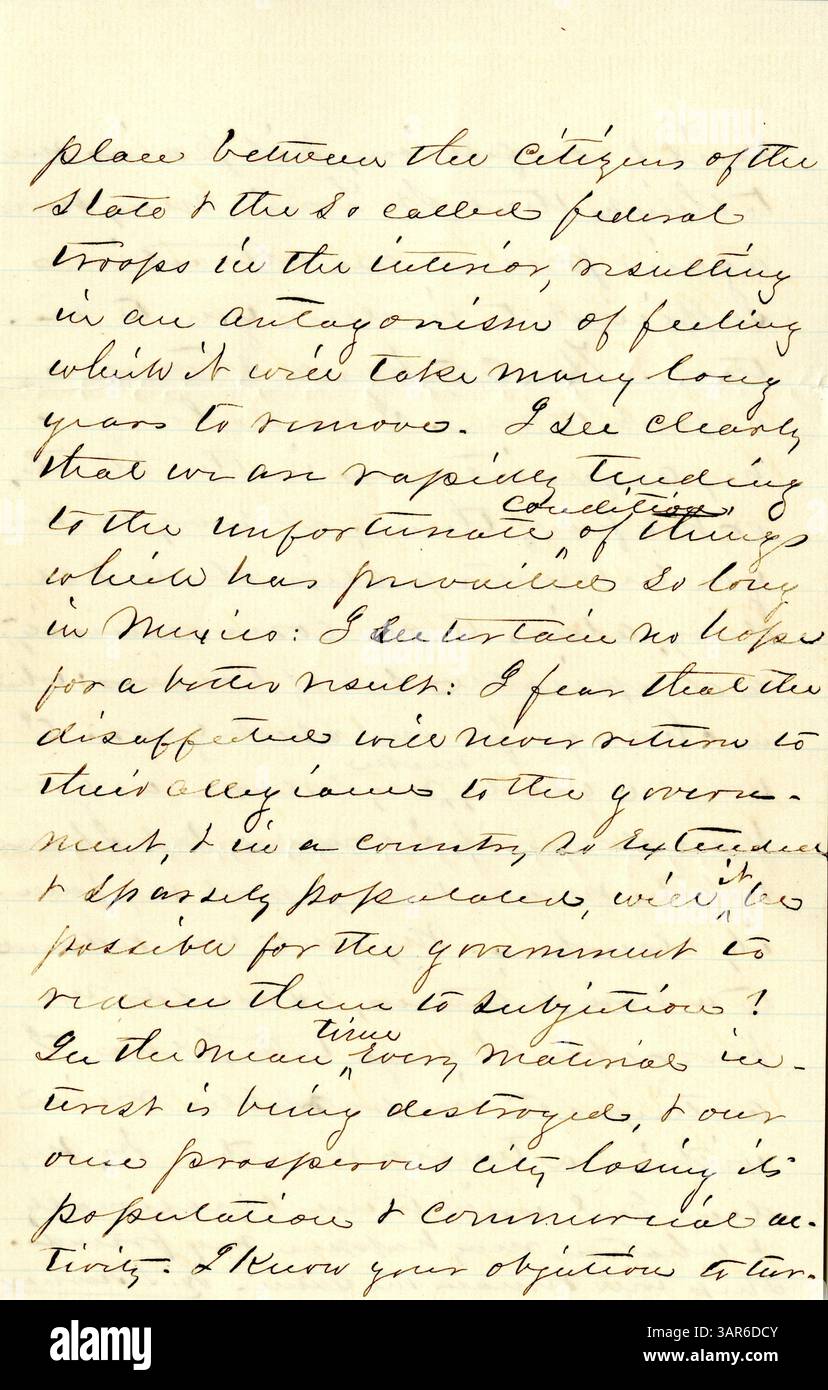 place between the citizens of the
State & the so called federal
troops in the interior, resulting
in an antagonism of feeling
which it will take many long
years to remove. I see clearly
that we are rapidly tending
to the unfortunate condition of things
which has prevailed so long
in Mexico: I entertain no hope
for a better result: I fear that the
disaffected will never return to
their allegiance to the govern-
ment, & in a country so extended
& sparsely populated, will it be
possible for the government to
reduce them to subjection?
In the mean time every material in-
terest is being destroyed, & our
once prosperous city losing its
population & commercial ac-
tivity. I know your objection to tur-
alamy
Image ID: 3AR6DCY
www.alamy.com